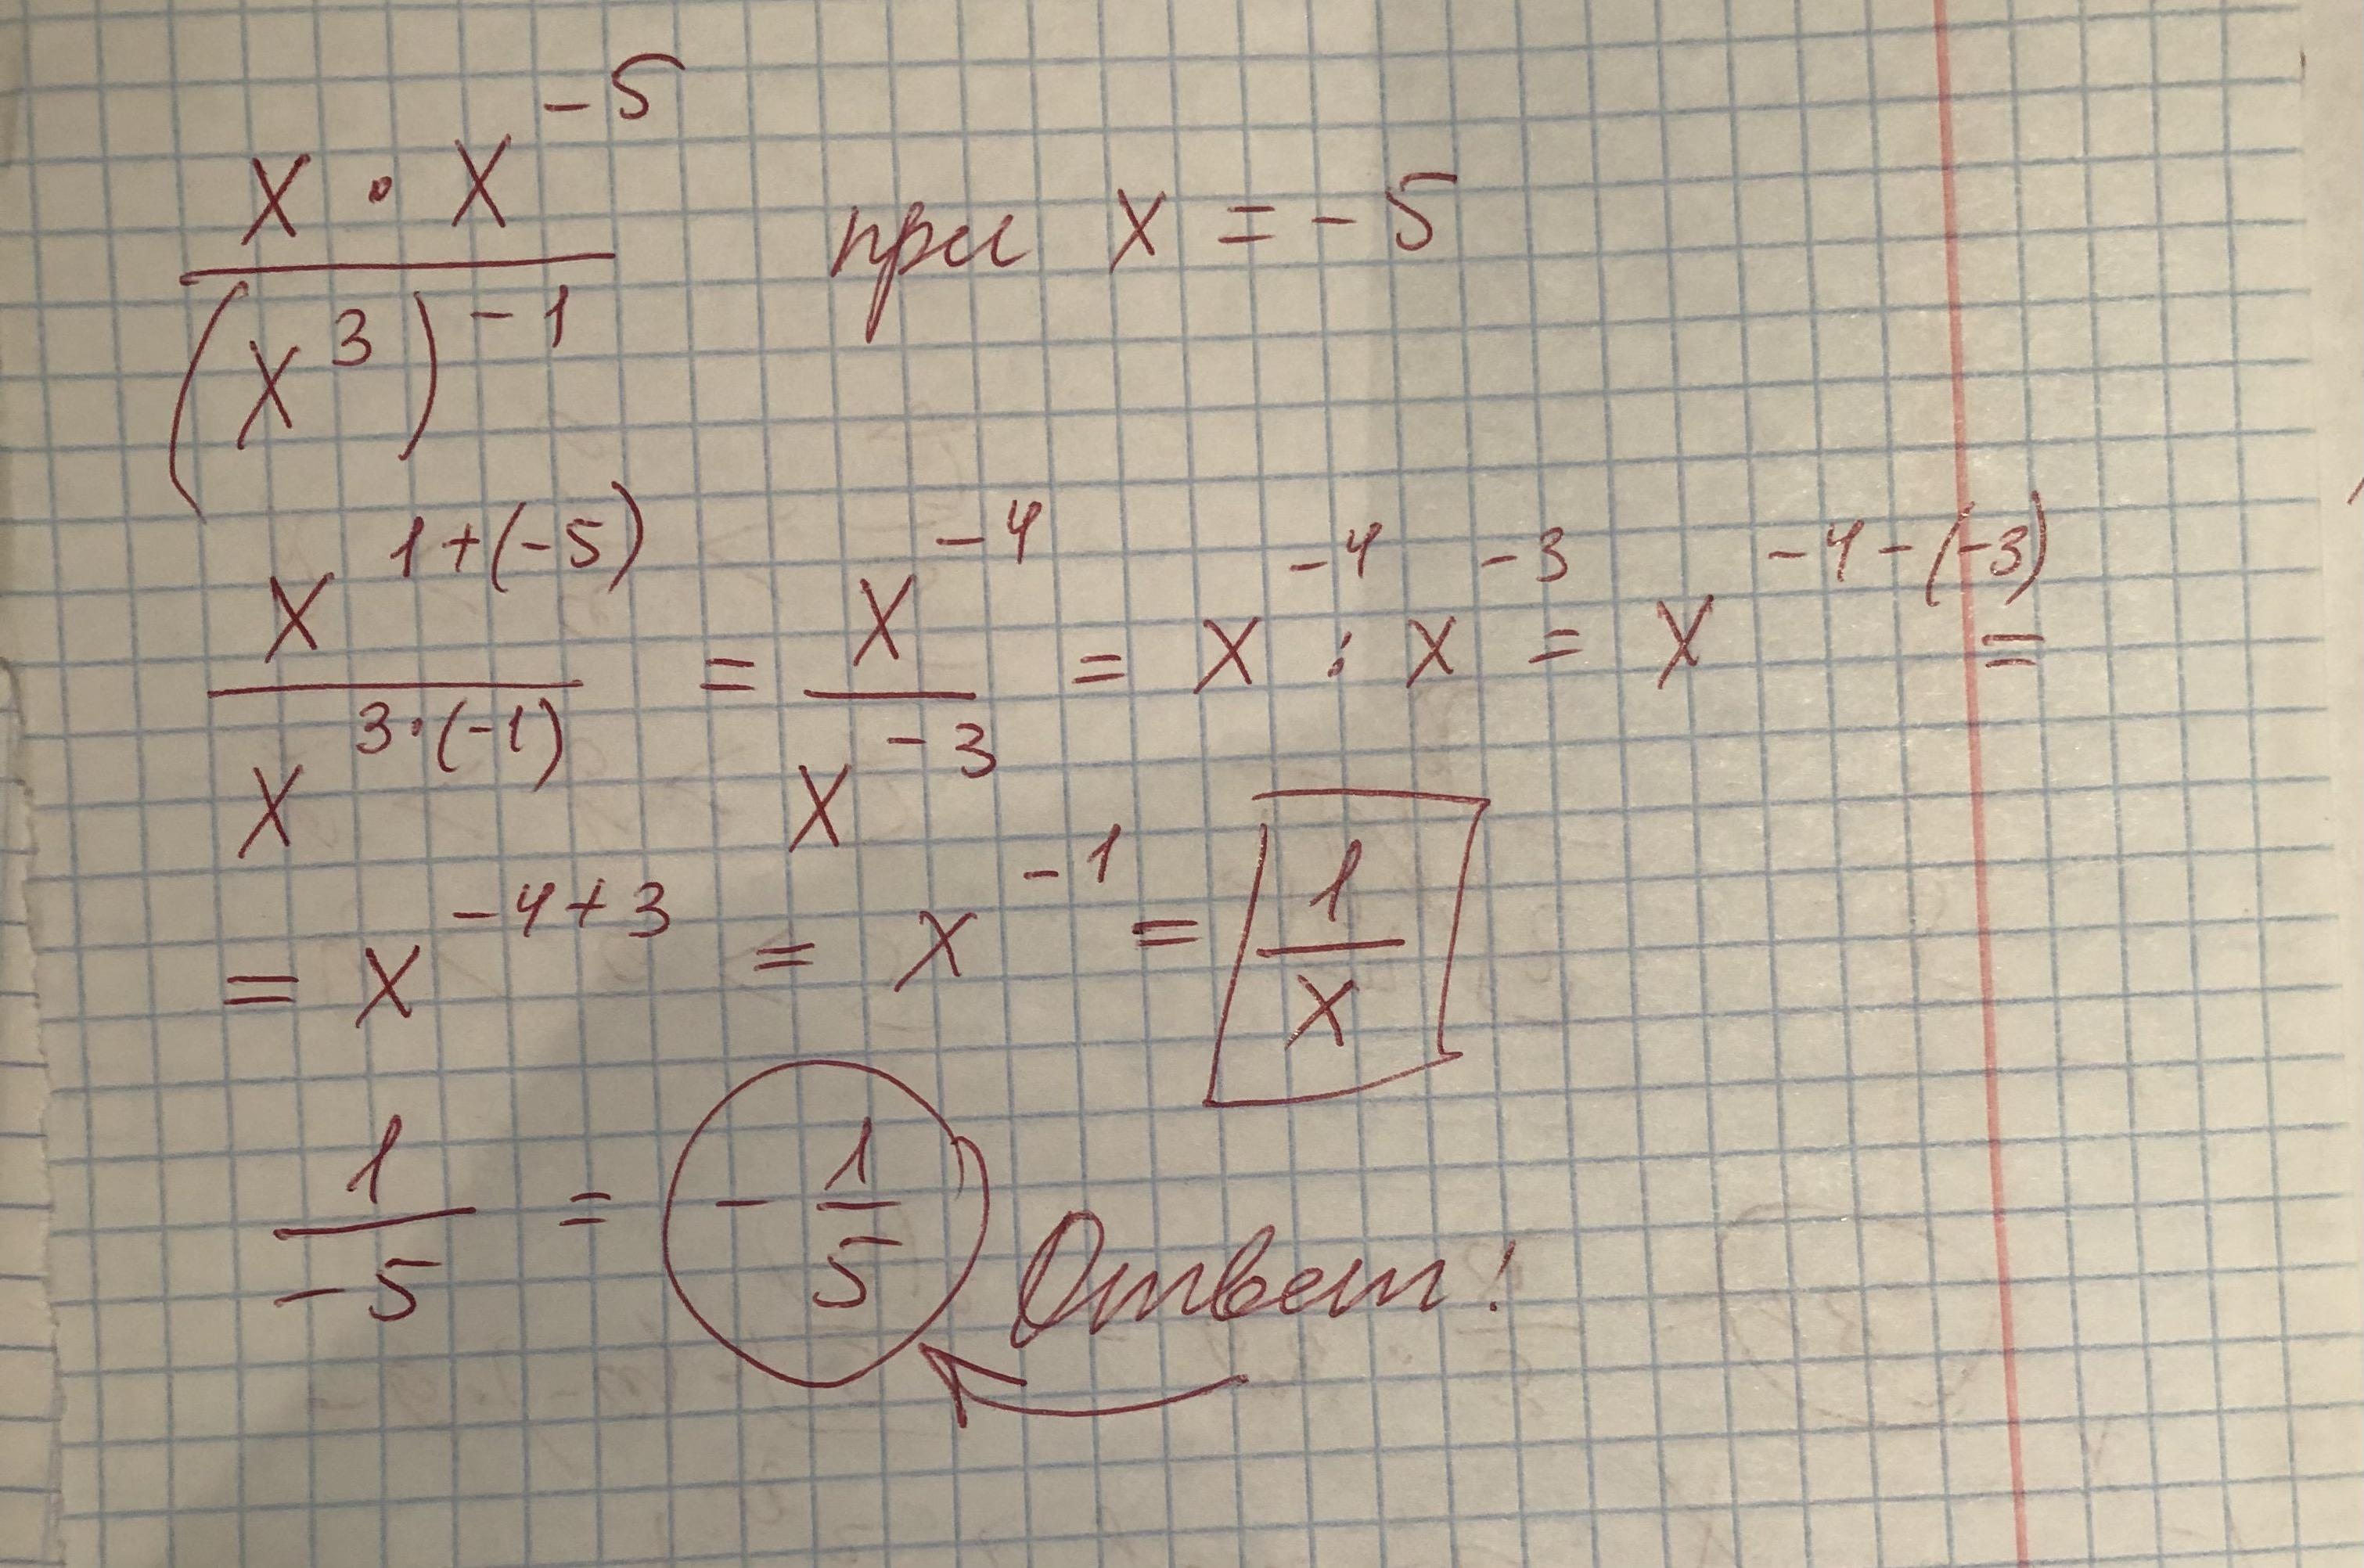 x · x^{-5} / (x^3)^{-1} при x = -5
x^{1+(-5)} / x^{3·(-1)} = x^{-4} / x^{-3} = x^{-4} : x^{-3} = x^{-4-(-3)} =
= x^{-4+3} = x^{-1} = 1/x
1/-5 = -1/5 Ответ!